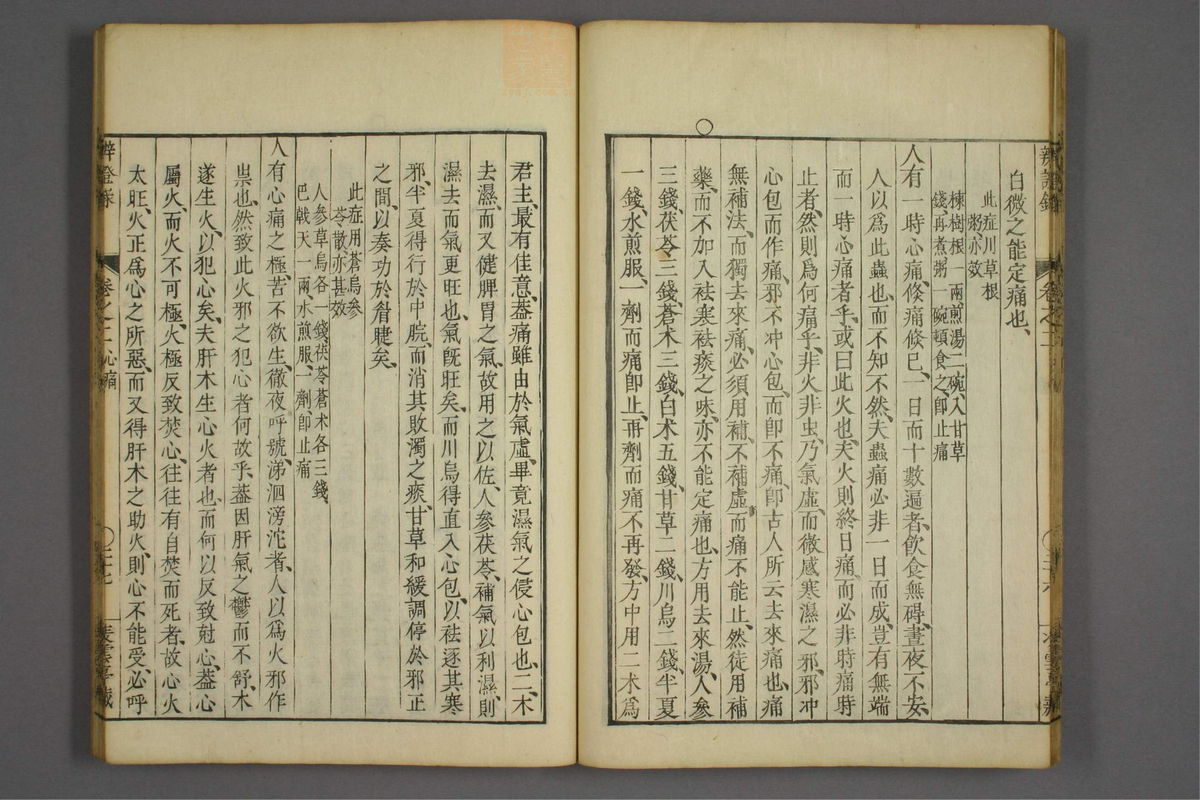 白微之能定痛也
此症川草根
粥亦效
楝樹根一兩煎湯二碗入甘草
錢再煮粥一碗頓食之卽止痛
人有一時心痛倏痛倏已一日而十數遍者飮食無碍晝夜不安
人以爲此蟲也而不知不然夫蟲痛必非一日而成豈有無端
而一時心痛者乎或曰此火也夫火則終日痛而必非時痛時
止者然則爲何痛乎非火非虫乃氣虛而微感寒濕之邪邪冲
心包而作痛邪不冲心包而卽不痛卽古人所云去來痛也痛
無補法而獨去來痛必須用補不補虛而痛不能止然徒用補
藥而不加入袪寒袪痰之味亦不能定痛也方用去來湯人參
三錢茯苓三錢蒼木三錢白术五錢甘草二錢川烏二錢半夏
一錢水煎服一劑而痛卽止再劑而痛不再發方中用二术爲
君主最有佳意葢痛雖由於氣虛畢竟濕氣之侵心包也二木
去濕而又健脾胃之氣故用之以佐人參茯苓補氣以利濕則
濕去而氣更旺也氣旣旺矣而川烏得直入心包以祛逐其寒
邪半夏得行於中脘而消其敗濁之痰甘草和緩調停於邪正
之間以奏功於眢睫矣
此症用蒼烏參
苓散亦甚效
人參草烏各一錢茯苓蒼术各三錢
巴戟天一兩水煎服一劑卽止痛
人有心痛之極苦不欲生徹夜呼號涕泗滂沱者人以爲火邪作
祟也然致此火邪之犯心者何故乎葢因肝氣之鬱而不舒木
遂生火以犯心矣夫肝木生心火者也而何以反致尅心葢心
屬火而火不可極火極反致焚心往往有自焚而死者故心火
太旺火正爲心之所惡而又得肝木之助火則心不能受必呼
卷之二心痛